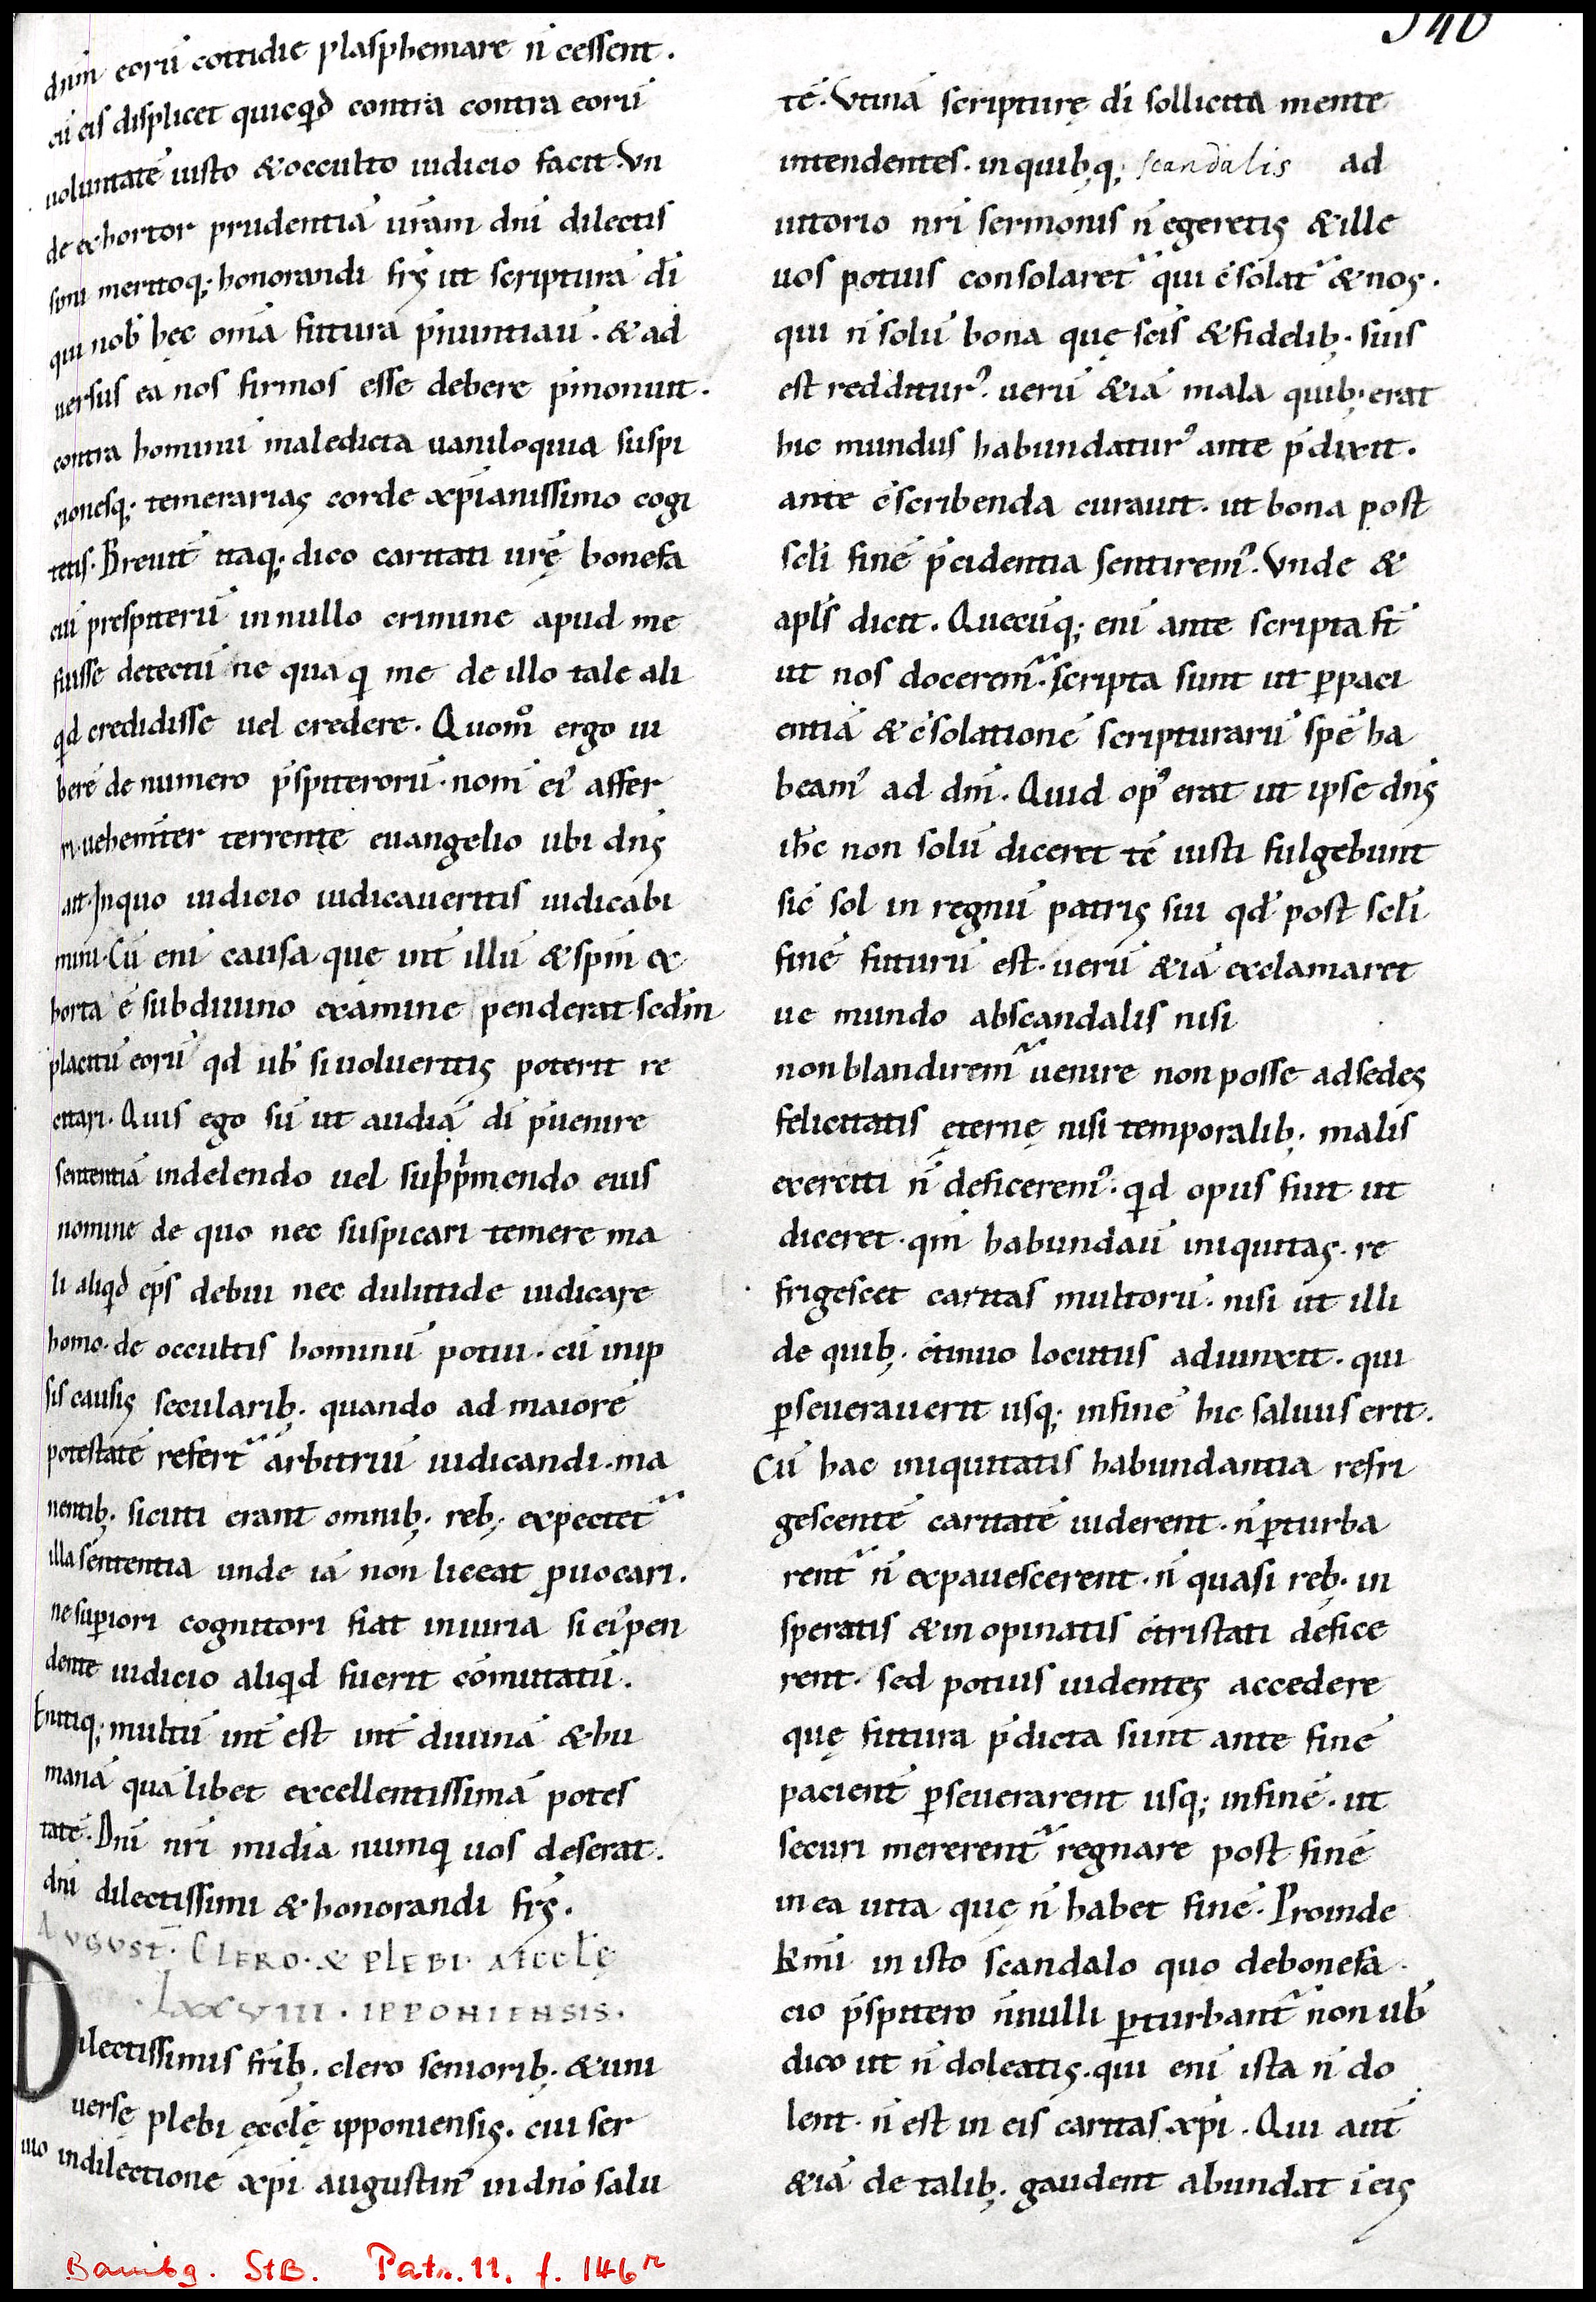 140
dnm̄ eorū cottidie plasphemare n̄ cessent.
cū eis displicet quicqd contra contra eorū
uoluntatē iusto & occulto iudicio facit. Vn
de exhortor prudentiā uram̄ dnī dilectis
simi meritoq; honorandi frs̄ ut scripturā dī
qui nob̄ hęc omā futura p̄nuntiauī. & ad
uersus ea nos firmos esse debere p̄monuit.
contra hominū maledicta uaniloquia suspi
cionesq; temerarias corde xp̄ianissimo cogi
tetis. Breuit̄ itaq; dico caritati urę̄ bonefa
ciū prespiterū in nullo crimine apud me
fuisse detectū ne qua q me de illo tale ali
qd credidisse uel credere. Quom̊ ergo iu
berē de numero p̄spiterorū. nom̄ ei᾽ affer
ri. uehemt̄er terrente euangelio ubi dn̄s
ait. In quo iudicio iudicaueritis iudicabi
mini. Cū eni causa quę int̄ illū & spm̄ ex
horta ē sub diuino examine penderat sedm̄
placitū eorū qd ub̄ si uolueritis poterit re
citari. Quis ego sū ut audiā dī p̄uenire
sententiā in delendo uel supp̄rimendo eius
nomine de quo nec suspicari temere ma
li aliqd ep̄s debui nec duluttide iudicare
homo. de occultis hominū potui. cū in ip
sis causis secularib;. quando ad maiorē
potestatē refert᷑ arbitriū iudicandi. ma
nentib; sicuti erant omnib; reb; expectet᷑
illa sententia unde iā non liceat ꝓuocari.
ne superiori cognitori fiat iniuria si ei᾽ pen
dente iudicio aliqd fuerit cōmutatū.
Et utiq; multū int̄ est int̄ diuinā & hu
manā qua libet excellentissimā potes
tatē. Dnī nrī midia numq uos deserat.
dnī dilectissimi & honorandi frs̄.
AVGVST̄. CLERO. & PLEBI. AECCLĘ
.LXXVIII. IPPONIENSIS.
Dilectissimis frib̄;. clero seniorib;. & uni
uersę plebi ęcclę̄ ipponiensis. cui ser
uio in dilectione xp̄i augustin᾽ in dnō salu
tē. Vtinā scripturę dī sollicita mente
intendentes. in quib; q; scandalis ad
iutorio nrī sermonis n̄ egeretis & ille
uos potius consolaret᷑ qui c̄solat᷑ & nos.
qui n̄ solū bona quę scīs & fidelib;. suis
est redditur᾽. uerū &iā mala quib; erat
hic mundus habundatur᾽ ante p̄dixit.
ante c̄scribenda curauit. ut bona post
sclī finē p̄cidentia sentirem᾽. Vnde &
apl̄s dicit. Quecūq; enī ante scripta st̄
ut nos docerem᷑. scripta sunt ut p̱ paci
entiā & c̄solationē scripturarū spē ha
beam᾽ ad dm̄. Quid op᾽ erat ut ipse dn̄s
ih̄c non solū diceret tē iusti fulgebunt
sic̄ sol in regnū patris sui qd̄ post sclī
finē futurū est. uerū &iā exclamaret
ue mundo ab scandalis nisi
non blandirem᷑ uenire non posse ad sedes
felicitatis ęternę nisi temporalib;. malis
exerciti n̄ deficerem᾽. qd opus fuit ut
diceret. qm̄ habundauī iniquitas. re
frigescet caritas multorū. nisi ut illi
de quib;. c̄tinuo locutus adiunxit. qui
p̱seuerauerit usq; in finē hic saluus erit.
Cū hac iniquitatis habundantia refri
gescentē caritatē uiderent. n̄ p̱turba
rent᷑ n̄ expauescerent. n̄ quasi reb;. in
speratis & in opinatis c̄tristati defice
rent. sed potius uidentes accedere
quę futura p̄dicta sunt ante finē
pacient̄ p̱seuerarent usq; in finē. ut
securi mererent᷑ regnare post finē
in ea uita quę n̄ habet finē. Proinde
Kmī in isto scandalo quo de bonefa
cio p̄spitero n̄nulli p̱turbant᷑ non ub̄
dico ut n̄ doleatis. qui enī ista n̄ do
lent. n̄ est in eis caritas xp̄i. Qui aut̄
&iā de talib;. gaudent abundat ī eis
Bambg. StB. Patr. 11. f. 146r